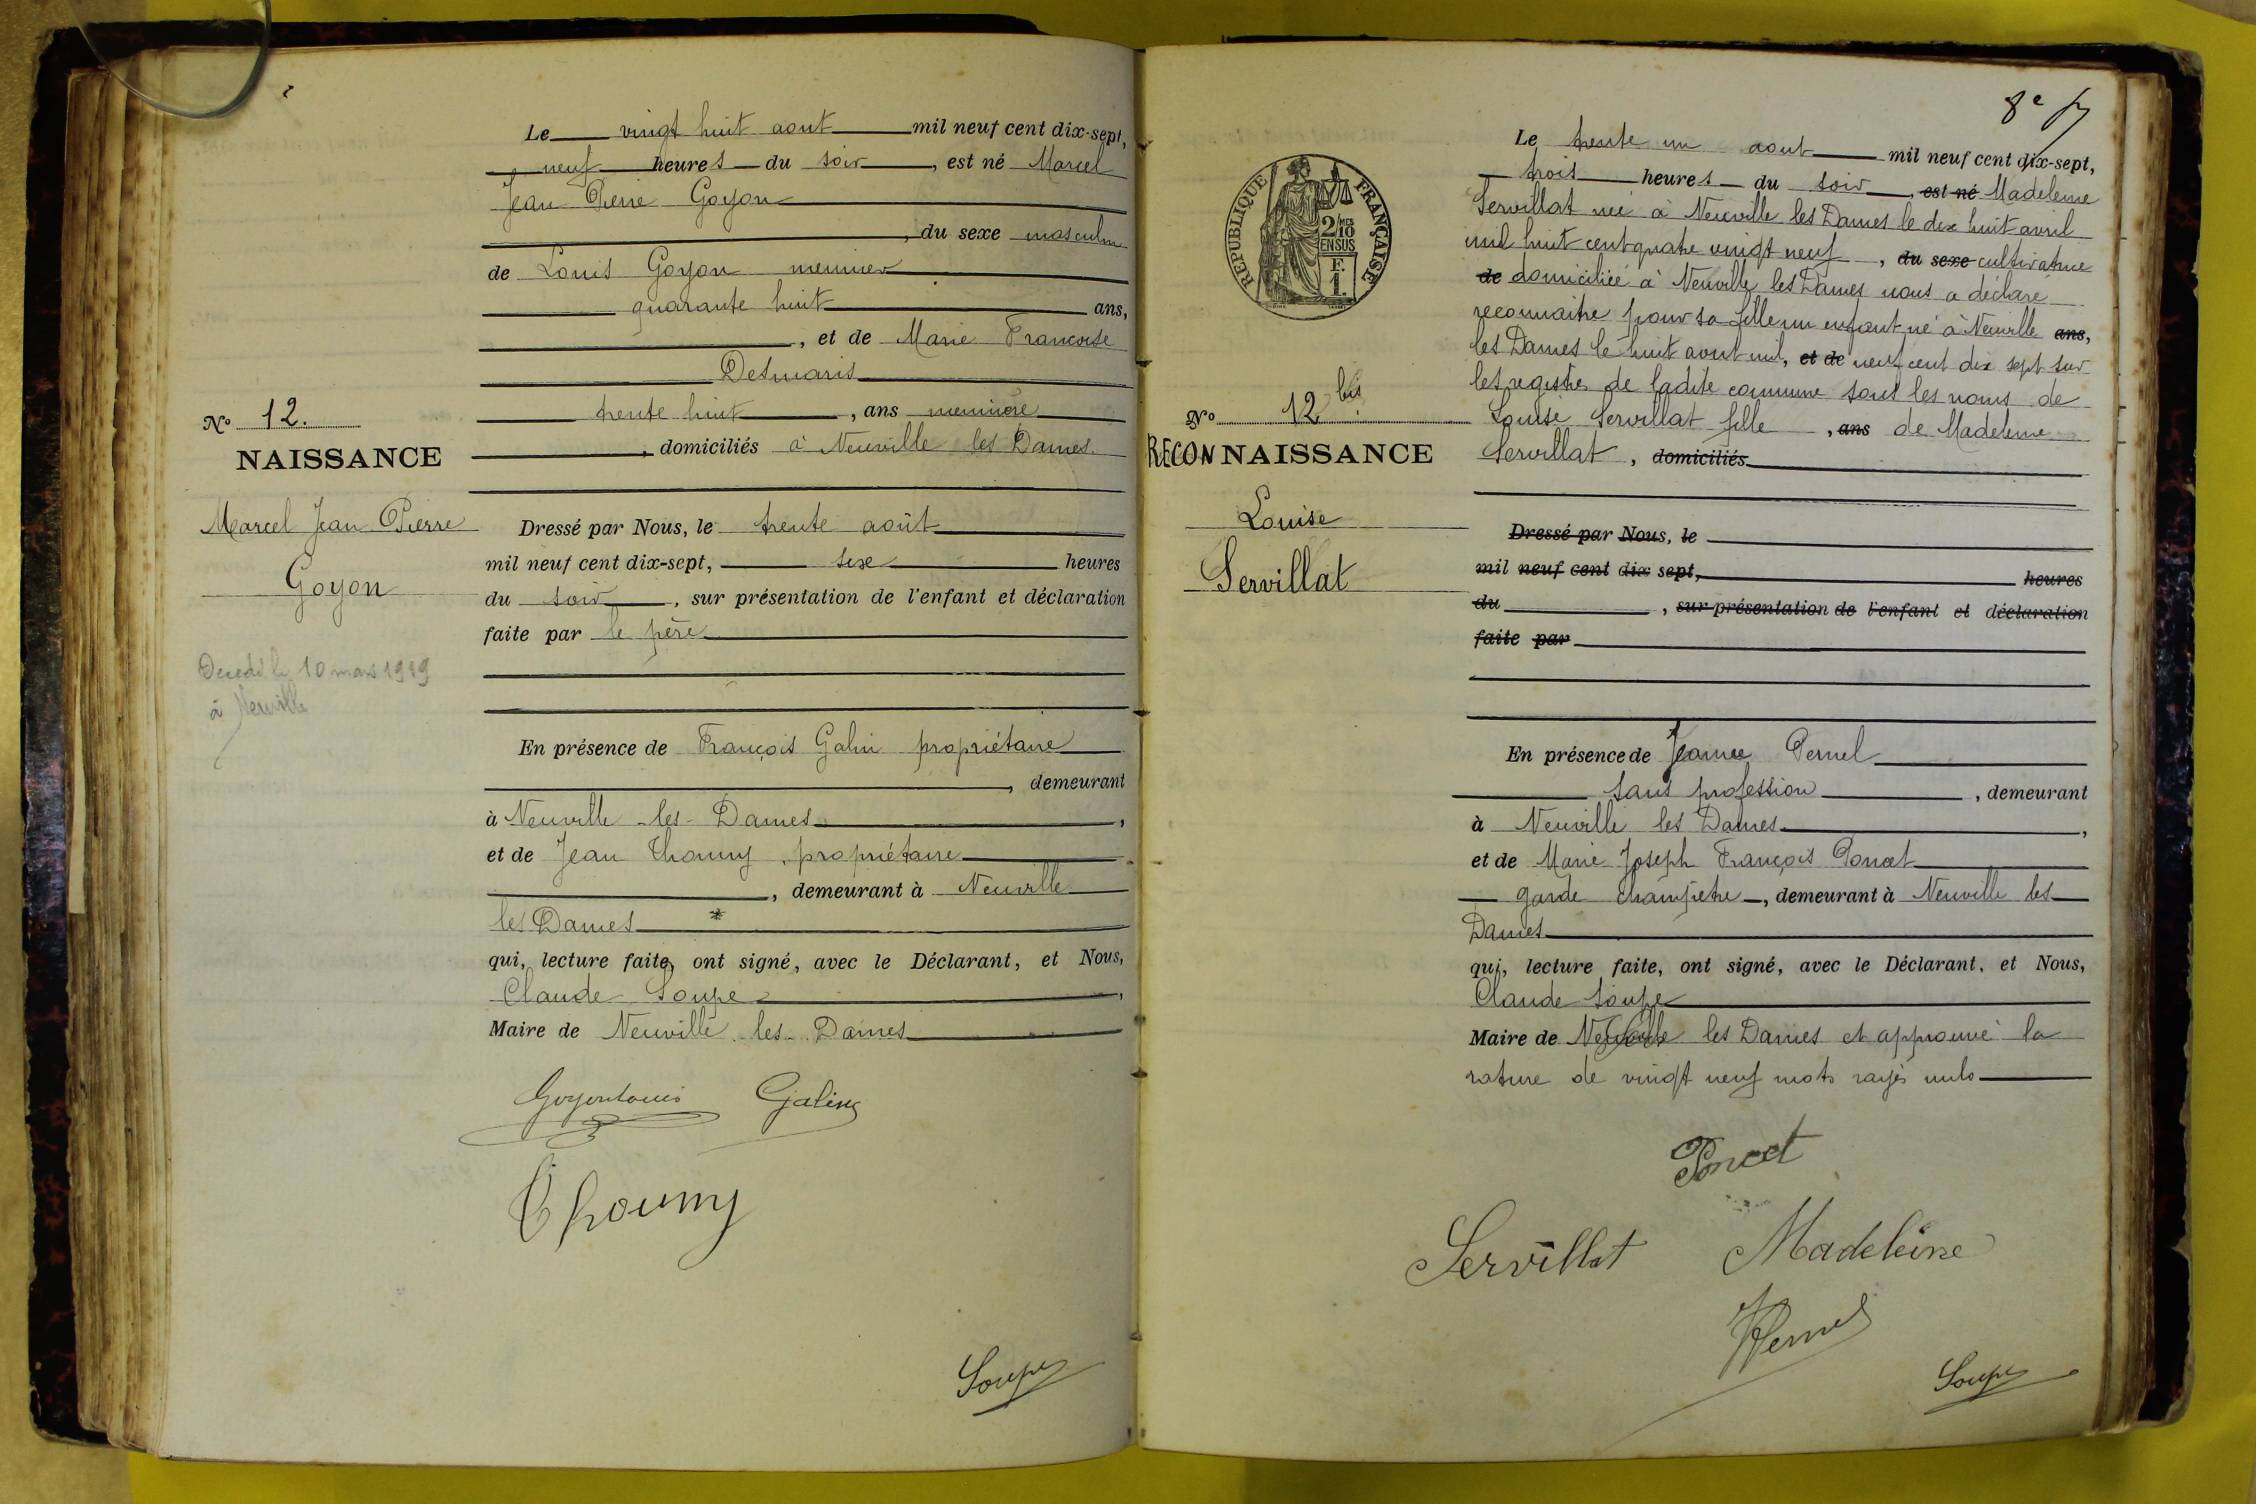 Le vingt huit aout mil neuf cent dix-sept,
neuf heures du soir, est né Marcel
Jean Pierre Goyon
, du sexe masculin
de Louis Goyon meunier
quarante huit ans,
, et de Marie Francoise
Desmaris
trente huit, ans meunière
, domiciliés à Neuville les Dames
No 12.
NAISSANCE
Marcel Jean Pierre
Goyon
Decedé le 10 mars 1919
à Neuville
Dressé par Nous, le trente août
mil neuf cent dix-sept, sixe heures
du soir, sur présentation de l'enfant et déclaration
faite par le père
En présence de François Galin propriétaire
, demeurant
à Neuville-les-Dames,
et de Jean Thoumy, propriétaire
, demeurant à Neuville
les Dames *
qui, lecture faite, ont signé, avec le Déclarant, et Nous,
Claude Soupe,
Maire de Neuville les Dames
Goyon Louis Galin
Thoumy
Soupe
8e
Le trente un aout mil neuf cent dix-sept,
trois heures du soir, est né Madeleine
Servillat née à Neuville les Dames le dix huit avril
mil huit cent quatre vingt neuf, du sexe cultivatrice
de domiciliée à Neuville les Dames nous a déclaré
reconnaitre pour sa fille un enfant né à Neuville ans,
les Dames le huit aout mil, et de neuf cent dix sept sur
les registres de ladite commune sous les noms de
Louise Servillat fille, ans de Madeleine
Servillat, domiciliés
RÉPUBLIQUE FRANÇAISE
2/10
EN SUS
F.
1.
No 12 bis
RECONNAISSANCE
Louise
Servillat
Dressé par Nous, le
mil neuf cent dix sept, heures
du, sur présentation de l'enfant et déclaration
faite par
En présence de Jeanne Pernel
sans profession, demeurant
à Neuville les Dames,
et de Marie Joseph François Poncet
garde champêtre, demeurant à Neuville les
Dames
qui, lecture faite, ont signé, avec le Déclarant, et Nous,
Claude Soupe
Maire de Neuville les Dames et approuvé la
rature de vingt neuf mots rayés nuls
Poncet
Servillat Madeleine
Soupe